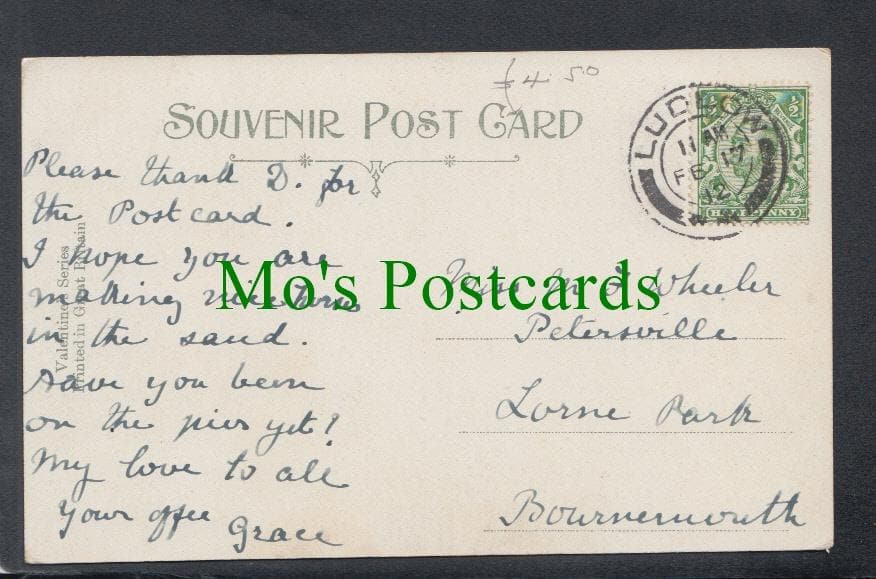 £4.50
SOUVENIR POST CARD
LUDLOW
11 AM
FE 17
12
½
HALFPENNY
Please thank D. for
the Postcard.
I hope you are
making
in the sand.
Have you been
on the pier yet?
My love to all
Your affec
Grace
Valentines Series
Printed in Great Britain
Mo's Postcards
Miss M Wheeler
Petersville
Lorne Park
Bournemouth